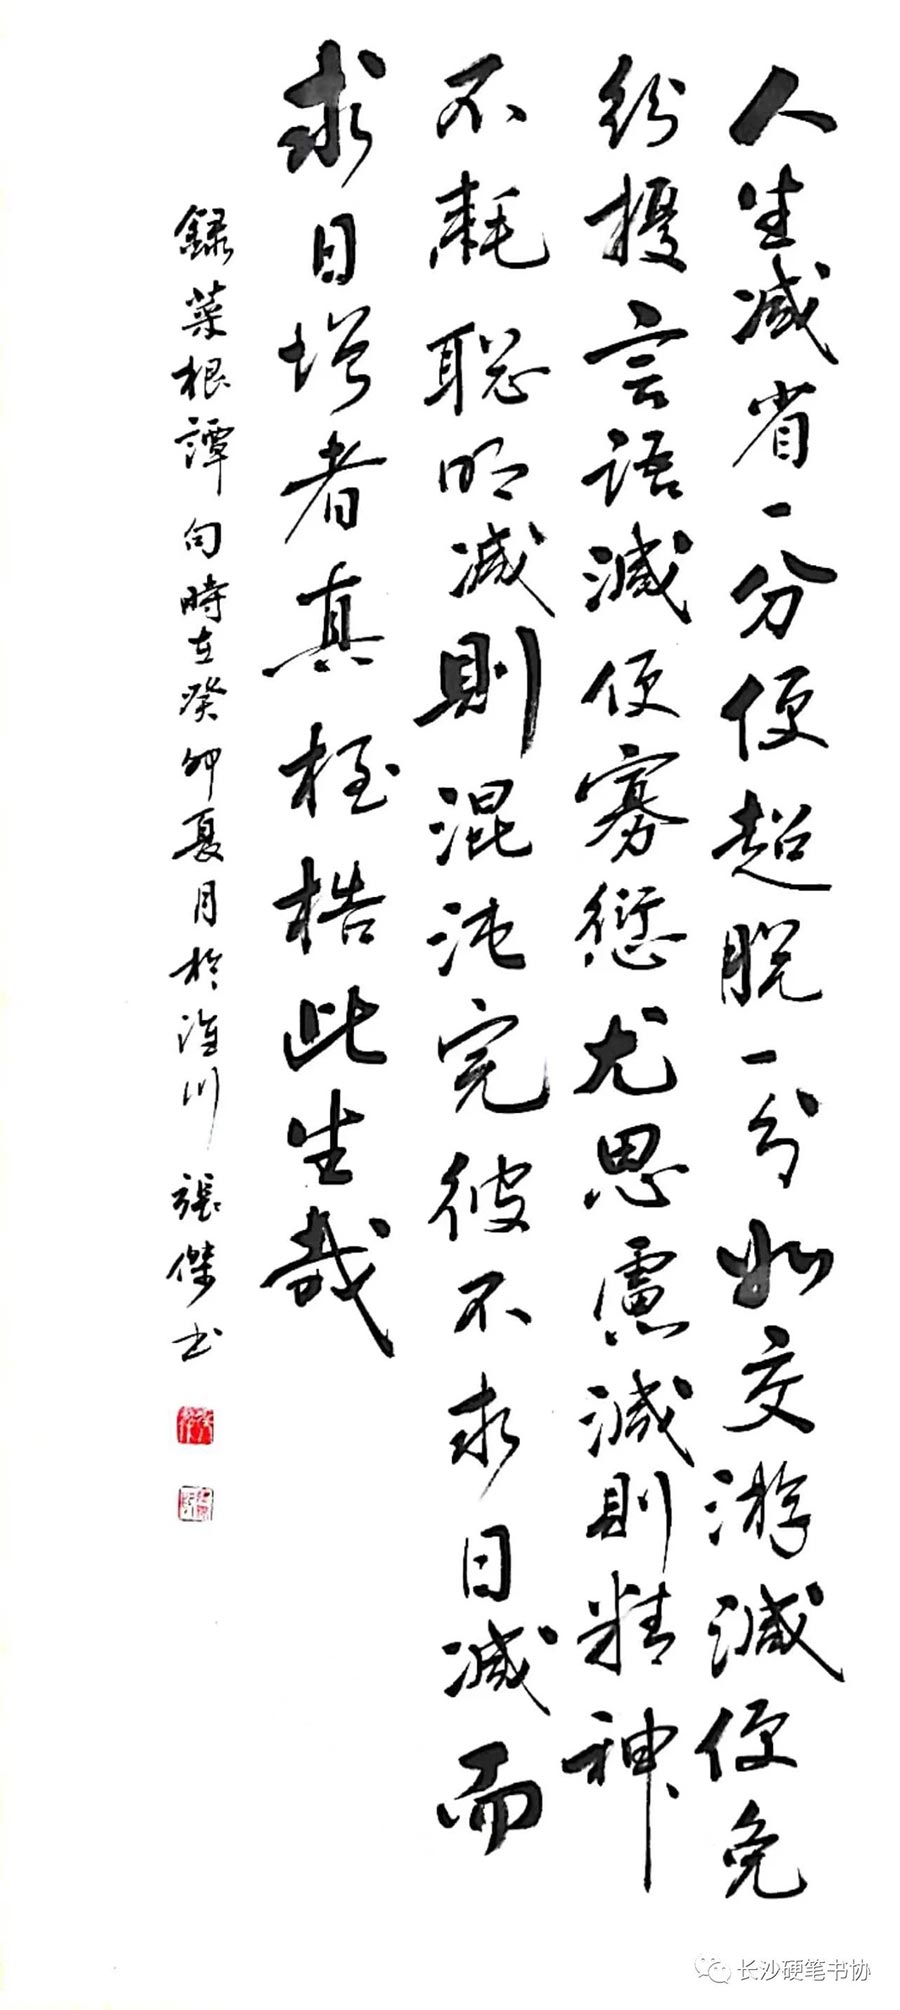 人生减省一分便超脱一分如交游减便免
纷擾言語减便寡愆尤思慮减則精神
不耗聪明减則混沌完彼不求日减而
求日增者真桎梏此生哉
録菜根譚句時在癸卯夏月於潍川張傑书
长沙硬笔书协